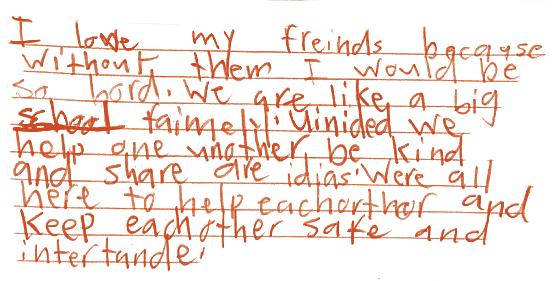 I love my freinds because
without them I would be
so hord. We are like a big
school faimely. Uinided we
help one unother, be kind
and share are idias. Were all
here to help eachorther and
keep each other safe and
intertande.